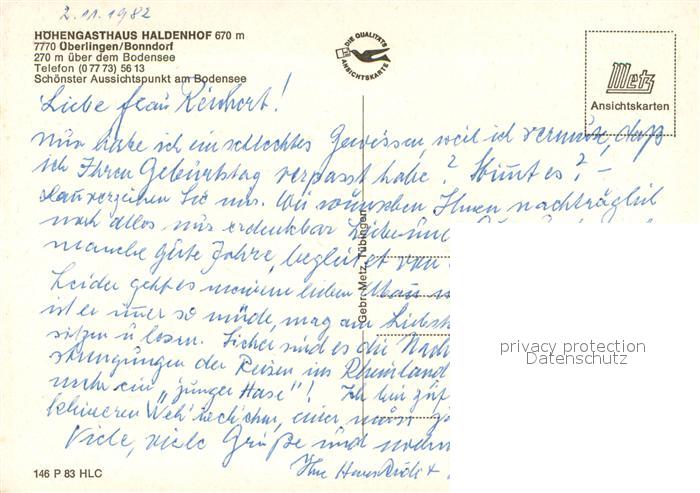 2.11.1982
HÖHENGASTHAUS HALDENHOF 670 m
7770 Überlingen/Bonndorf
270 m über dem Bodensee
Telefon (0 77 73) 56 13
Schönster Aussichtspunkt am Bodensee
DIE QUALITÄTS ANSICHTSKARTE
Metz
Ansichtskarten
Liebe Frau Reichert!
Nun habe ich ein schlechtes Gewissen, weil ich vermute, daß
ich Ihren Geburtstag verpasst habe? Stimmt es? –
verzeihen Sie mir. Wir wünschen Ihnen nachträglich
noch alles nur erdenkbar Liebe und
manche gute Jahre, begleitet von
Leider geht es meinem lieben Mann
ist er immer so müde, mag am Liebst
sitzen u lesen. Sicher sind es die Nach
strengungen der Reisen ins Rheinland
mehr ein "junger Hase"! Ich bin
kleineren Weh
Viele, viele Grüße und
Ihre
Gebr. Metz, Tübingen
privacy protection
Datenschutz
146 P 83 HLC